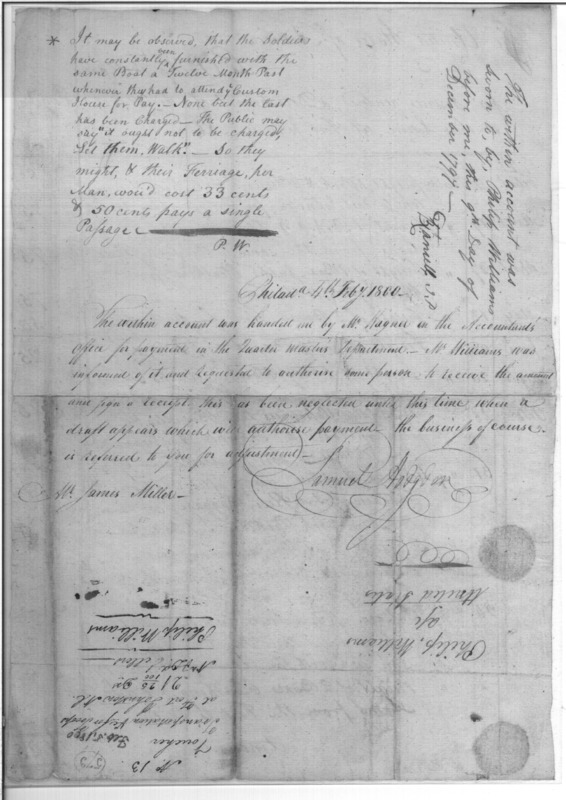 * It may be observed, that the Soldiers
have constantly been furnish'd with the
same Boat a Twelve Month Past
whenever they had to attend Custom
House for Pay. — None but the last
has been Charged — The Public may
say it ought not to be charged,
Let them, Walk". — So they
might, & their Ferriage, per
Man, wou'd cost 33 cents
& 50 cents pays a single
Passage
P. W.
The within account was
sworn to, by, Philip Williams
before me, this 9th Day of
December 1797 —
J. P.
Philada. 4th. Feby. 1800 —
The within account was handed me by Mr. Wagner in the Accountants
office for payment in the Quarter Masters Department — Mr. Williams was
informed of it and requested to authorise some person to receive the amount
and sign a receipt. this has been neglected until this time when a
draft appears which will authorise payment — the business of course
is referred to you for adjustment —
Samuel Hodgdon
Mr. James Miller —
Philip Williams
United States
No. 13
Voucher
Feb. 5. 1800
Transportation
at Fort Johnston N.C.
21 75/100
Philip Williams